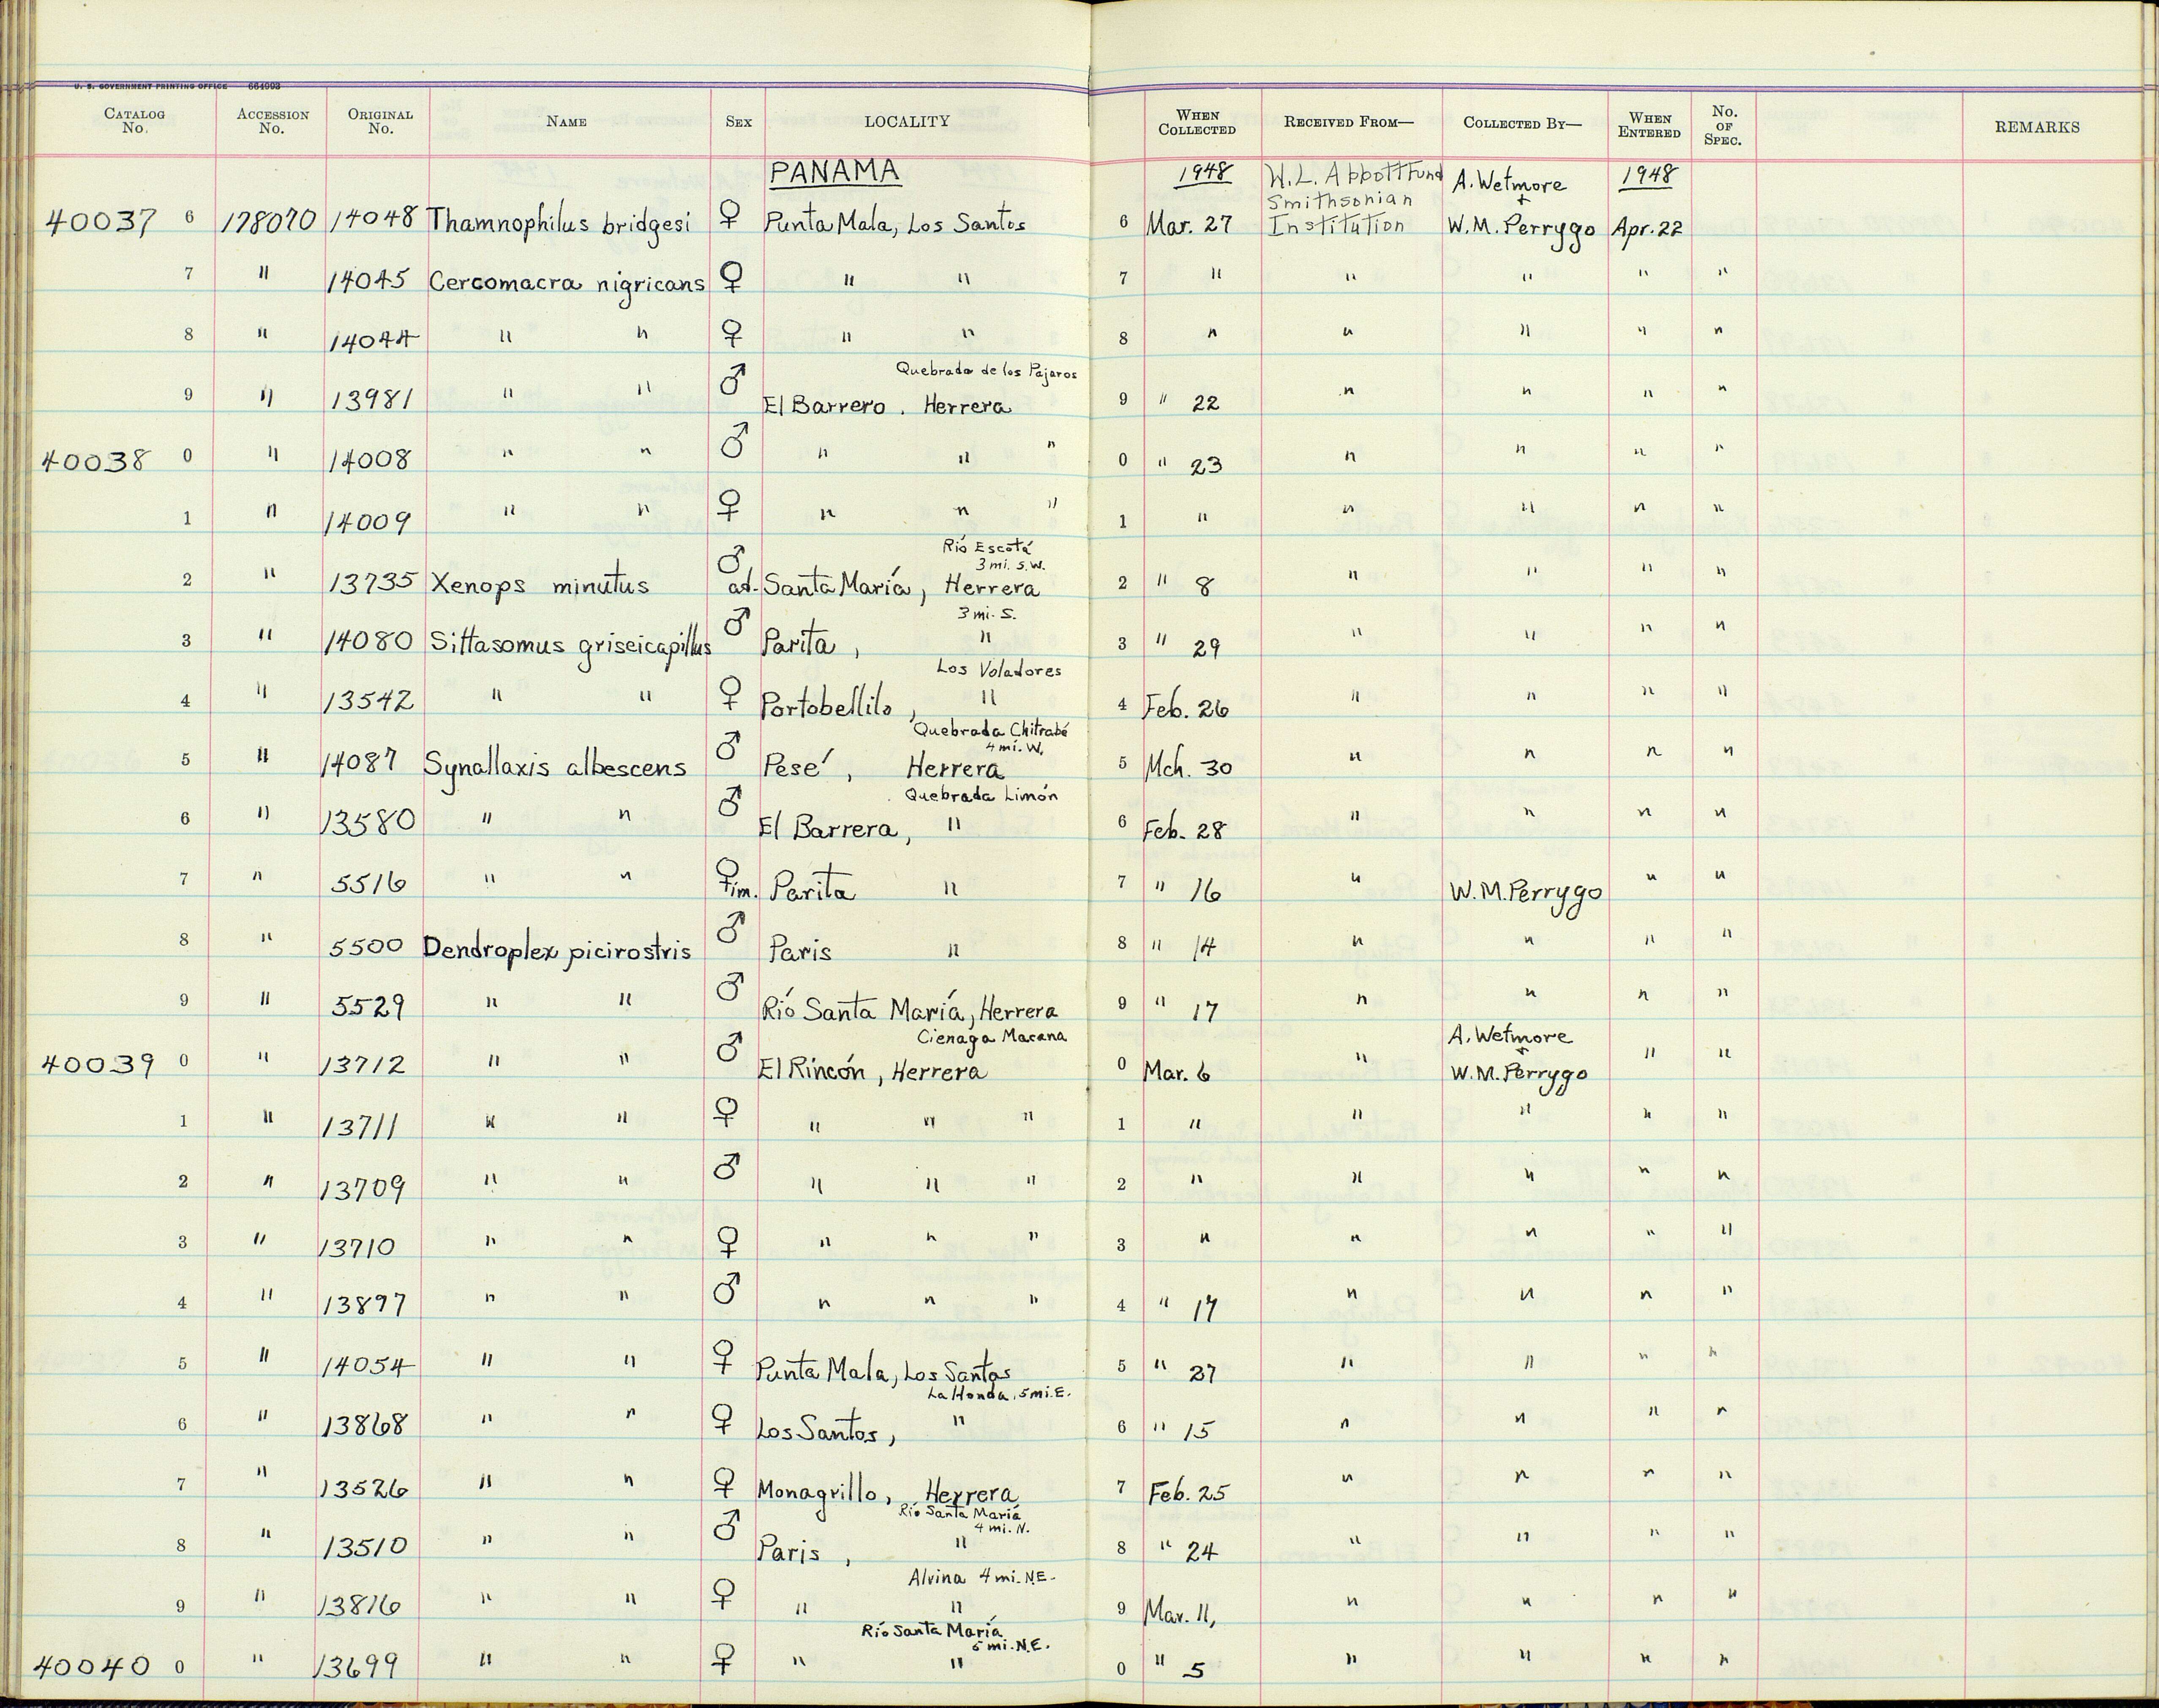 U. S. GOVERNMENT PRINTING OFFICE 664993
CATALOG No. ACCESSION No. ORIGINAL No. NAME SEX LOCALITY WHEN COLLECTED RECEIVED FROM— COLLECTED BY— WHEN ENTERED No. OF SPEC. REMARKS
PANAMA 1948 W.L. Abbott Fund A. Wetmore 1948
Smithsonian +
40037 6 178070 14048 Thamnophilus bridgesi ♀ Punta Mala, Los Santos 6 Mar. 27 Institution W.M. Perrygo Apr. 22
7 " 14045 Cercomacra nigricans ♀ " " 7 " " " " "
8 " 14044 " " ♀ " " 8 " " " " "
Quebrada de los Pajaros
9 " 13981 " " ♂ El Barrero. Herrera 9 " 22 " " " "
40038 0 " 14008 " " ♂ " " " 0 " 23 " " " "
1 " 14009 " " ♀ " " " 1 " " " " "
Río Escotá
3 mi. S.W.
2 " 13735 Xenops minutus ♂ ad. Santa María, Herrera 2 " 8 " " " "
3 mi. S.
3 " 14080 Sittasomus griseicapillus ♂ Parita, " 3 " 29 " " " "
Los Voladores
4 " 13542 " " ♀ Portobellilo, " 4 Feb. 26 " " " "
Quebrada Chitrabé
4 mi. W.
5 " 14087 Synallaxis albescens ♂ Pesé, Herrera 5 Mch. 30 " " " "
Quebrada Limón
6 " 13580 " " ♂ El Barrera, " 6 Feb. 28 " " " "
7 " 5516 " " ♀ im. Parita " 7 " 16 " W.M. Perrygo " "
8 " 5500 Dendroplex picirostris ♂ Paris " 8 " 14 " " " "
9 " 5529 " " ♂ Río Santa María, Herrera 9 " 17 " " " "
Cienaga Macana A. Wetmore
+
40039 0 " 13712 " " ♂ El Rincón, Herrera 0 Mar. 6 " W.M. Perrygo " "
1 " 13711 " " ♀ " " " 1 " " " " "
2 " 13709 " " ♂ " " " 2 " " " " "
3 " 13710 " " ♀ " " " 3 " " " " "
4 " 13897 " " ♂ " " " 4 " 17 " " " "
5 " 14054 " " ♀ Punta Mala, Los Santos 5 " 27 " " " "
La Honda, 5 mi. E.
6 " 13868 " " ♀ Los Santos, " 6 " 15 " " " "
7 " 13526 " " ♀ Monagrillo, Herrera 7 Feb. 25 " " " "
Río Santa María
4 mi. N.
8 " 13510 " " ♂ Paris, " 8 " 24 " " " "
Alvina 4 mi. N.E.
9 " 13816 " " ♀ " " 9 Mar. 11, " " " "
Río Santa María
5 mi. N.E.
40040 0 " 13699 " " ♀ " " 0 " 5 " " " "